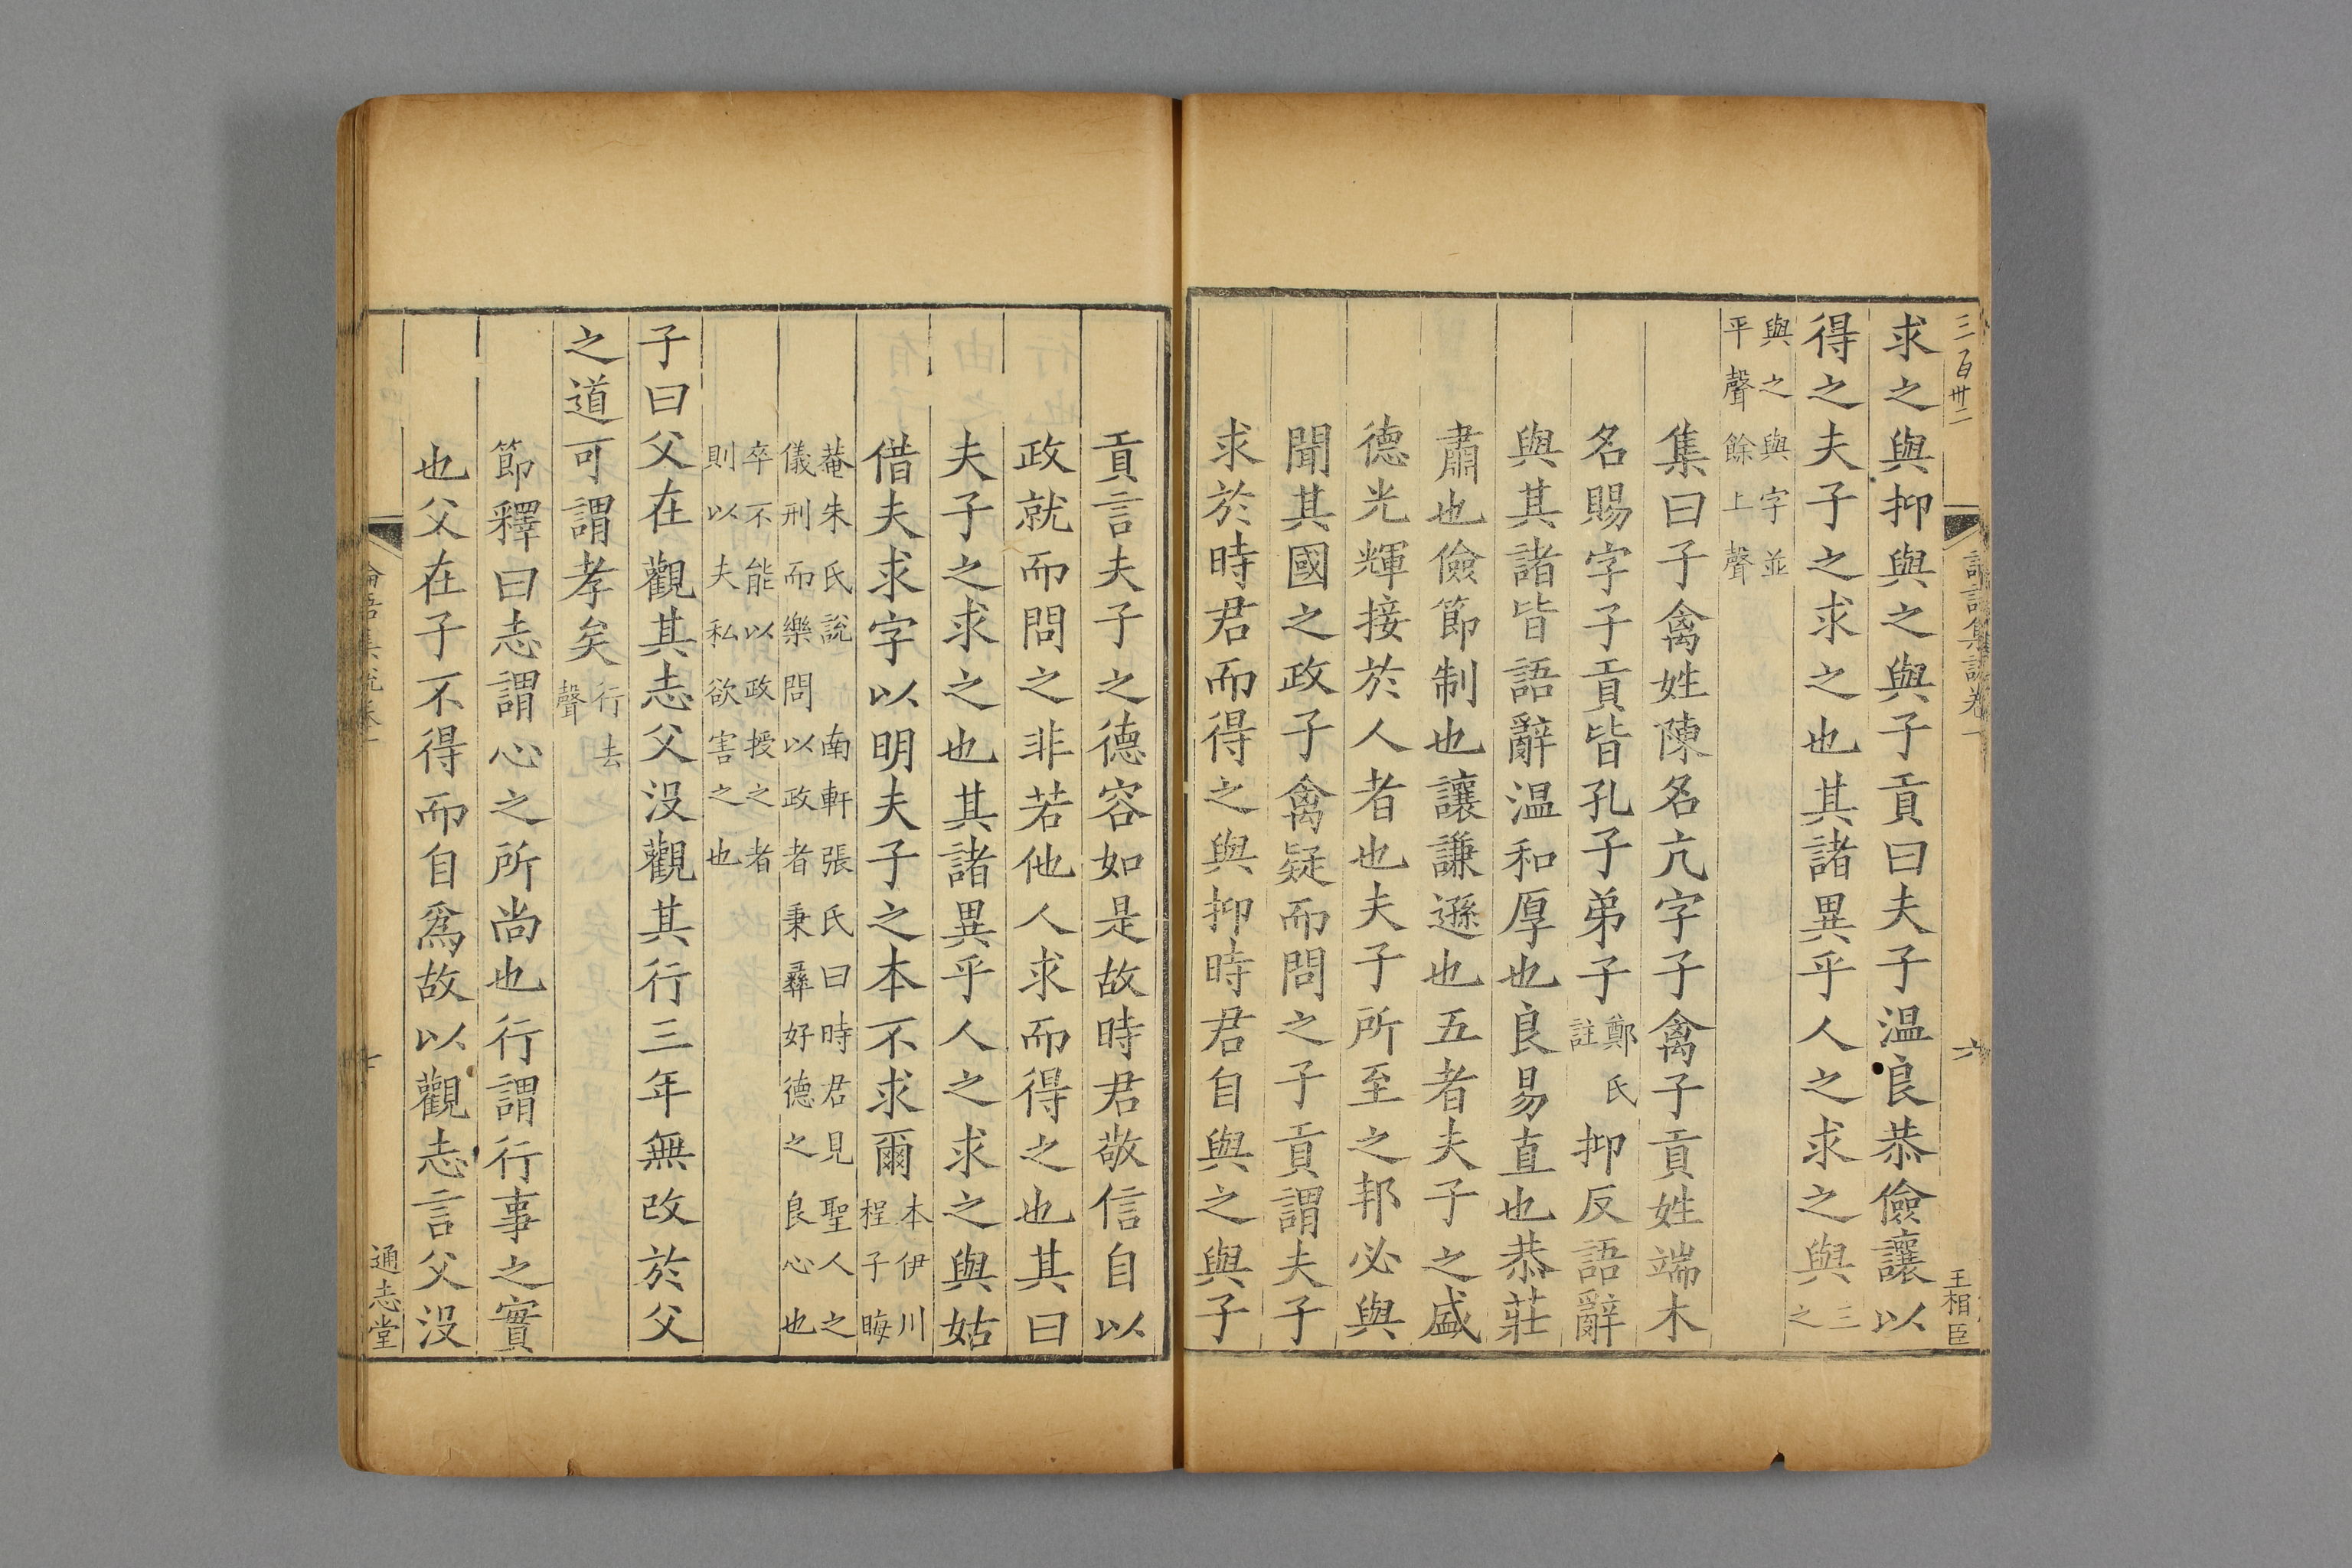 三百卅二
王相臣
求之與抑與之與子貢曰夫子温良恭儉讓以
得之夫子之求之也其諸異乎人之求之與三之
與之與字並
平聲餘上聲
集曰子禽姓陳名亢字子禽子貢姓端木
名賜字子貢皆孔子弟子鄭氏註抑反語辭
與其諸皆語辭温和厚也良易直也恭莊
肅也儉節制也讓謙遜也五者夫子之盛
德光輝接於人者也夫子所至之邦必與
聞其國之政子禽疑而問之子貢謂夫子
求於時君而得之與抑時君自與之與子
貢言夫子之德容如是故時君敬信自以
政就而問之非若他人求而得之也其曰
夫子之求之也其諸異乎人之求之與姑
借夫求字以明夫子之本不求爾本伊川程子晦
菴朱氏說 南軒張氏曰時君見聖人之
儀刑而樂問以政者秉彞好德之良心也
卒不能以政授之者
則以夫私欲害之也
子曰父在觀其志父没觀其行三年無改於父
之道可謂孝矣行去聲
節釋曰志謂心之所尚也行謂行事之實
也父在子不得而自爲故以觀志言父没
通志堂